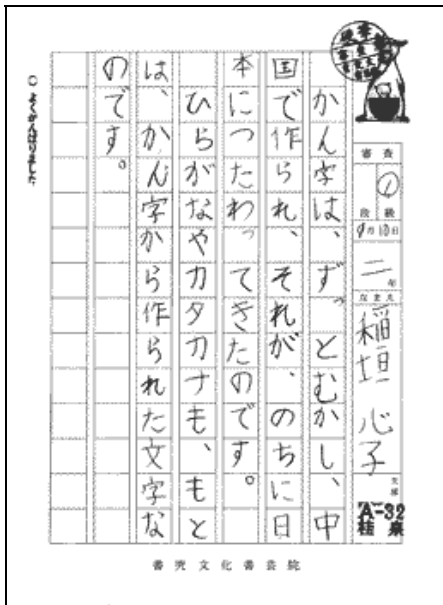 審査
段級
9月10日
二年
なまえ
稲垣 心子
支部
A-32
桂泉
かん字は、ずっとむかし、中
国で作られ、それが、のちに日
本につたわってきたのです。
ひらがなやカタカナも、もと
は、かん字から作られた文字な
のです。
○ よくがんばりました
書究文化書芸院